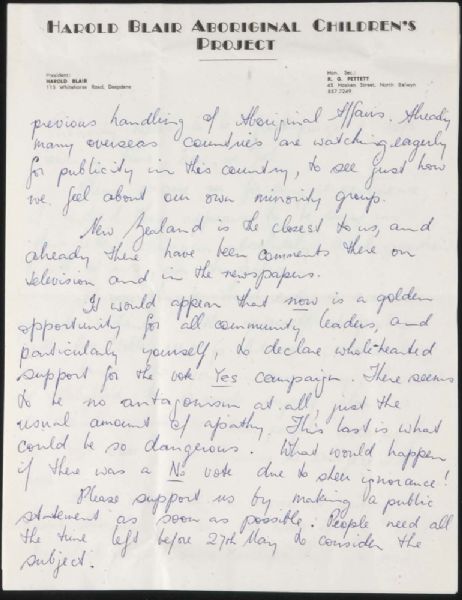 HAROLD BLAIR ABORIGINAL CHILDREN'S
PROJECT
President:
HAROLD BLAIR
115 Whitehorse Road, Deepdene
Hon. Sec.:
R. G. PETTETT
45 Hosken Street, North Balwyn
857 7249
previous handling of Aboriginal Affairs. Already
many overseas countries are watching eagerly
for publicity in this country, to see just how
we feel about our own minority group.
New Zealand is the closest to us, and
already there have been comments there on
television and in the newspapers.
It would appear that now is a golden
opportunity for all community leaders, and
particularly yourself, to declare whole-hearted
support for the vote Yes campaign. There seems
to be no antagonism at all, just the
usual amount of apathy. This last is what
could be so dangerous. What would happen
if there was a No vote due to sheer ignorance!
Please support us by making a public
statement as soon as possible. People need all
the time left before 27th May to consider the
subject.